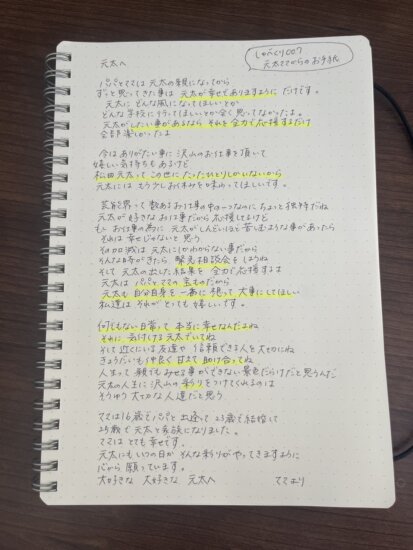 しゃべくり007
元太ママからのお手紙
元太へ
パパとママは元太の親になってから
ずっと思ってきた事は 元太が幸せでありますように だけです。
元太に どんな風になってほしいとか
どんな学校に行ってほしいとか全く思ってなかったよ。
元太がしたい事があるなら それを全力で応援するだけ
全部楽しかったよ
今はありがたい事に 沢山のお仕事を頂いて
嬉しい気持ちもあるけど
松田元太って この世に たったひとりしかいないから
元太には もう少しお休みを味わってほしいです。
芸能界って数あるお仕事の中の一つなのに ちょっと独特だね
元太が好きなお仕事だから応援してるけど
もし お仕事の為に 元太がしんどいほど苦しむような事があったら
それは 幸せじゃないと思う
その加減は 元太にしかわからない事だから
そんな時がきたら 緊急相談会をしようね
そして 元太の出した結果を 全力で応援するよ
元太は パパとママの宝ものだから
元太も自分自身を一番に想って大事にしてほしい
私達は それが とっても嬉しいです。
何でもない日常って 本当に幸せなんだよね
それに気付ける元太でいてね
そして 近くにいる友達や 信頼できる人を大切にね
きょうだいも 仲良く 甘えて 助け合ってね
人生って 親でもみせる事ができない景色だらけだと思うんだ
元太の人生に 沢山の彩りをつけてくれるのは
そうゆう 大切な人達だと思う
ママは16歳でパパと出逢って 23歳で結婚して
25歳で元太と家族になりました。
ママは とても幸せです。
元太にもいつの日か そんな彩りがやってきますように
心から 願っています。
大好きな 大好きな 元太へ
ママより